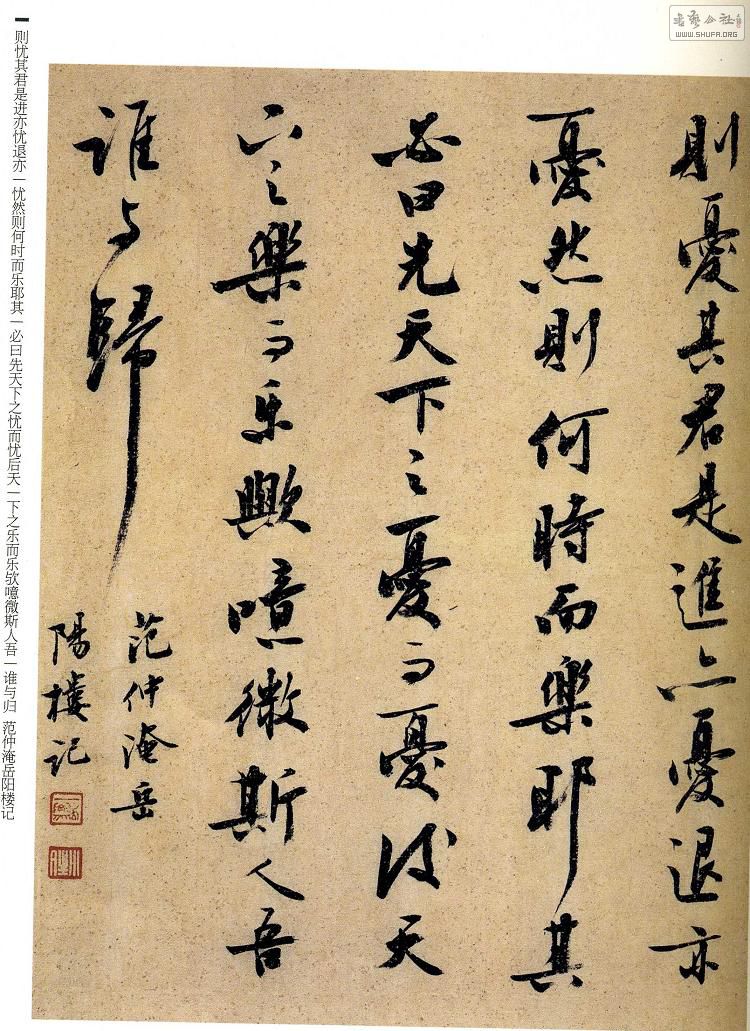 則憂其君是進亦憂退亦
憂然則何時而樂耶其
必曰先天下之憂而憂後天
下之樂而樂歟噫微斯人吾
誰与歸
范仲淹岳
陽樓記
则忧其君是进亦忧退亦一忧然则何时而乐耶其一必曰先天下之忧而忧后天一下之乐而乐欤噫微斯人吾一谁与归 范仲淹岳阳楼记
WWW.SHUFA.ORG